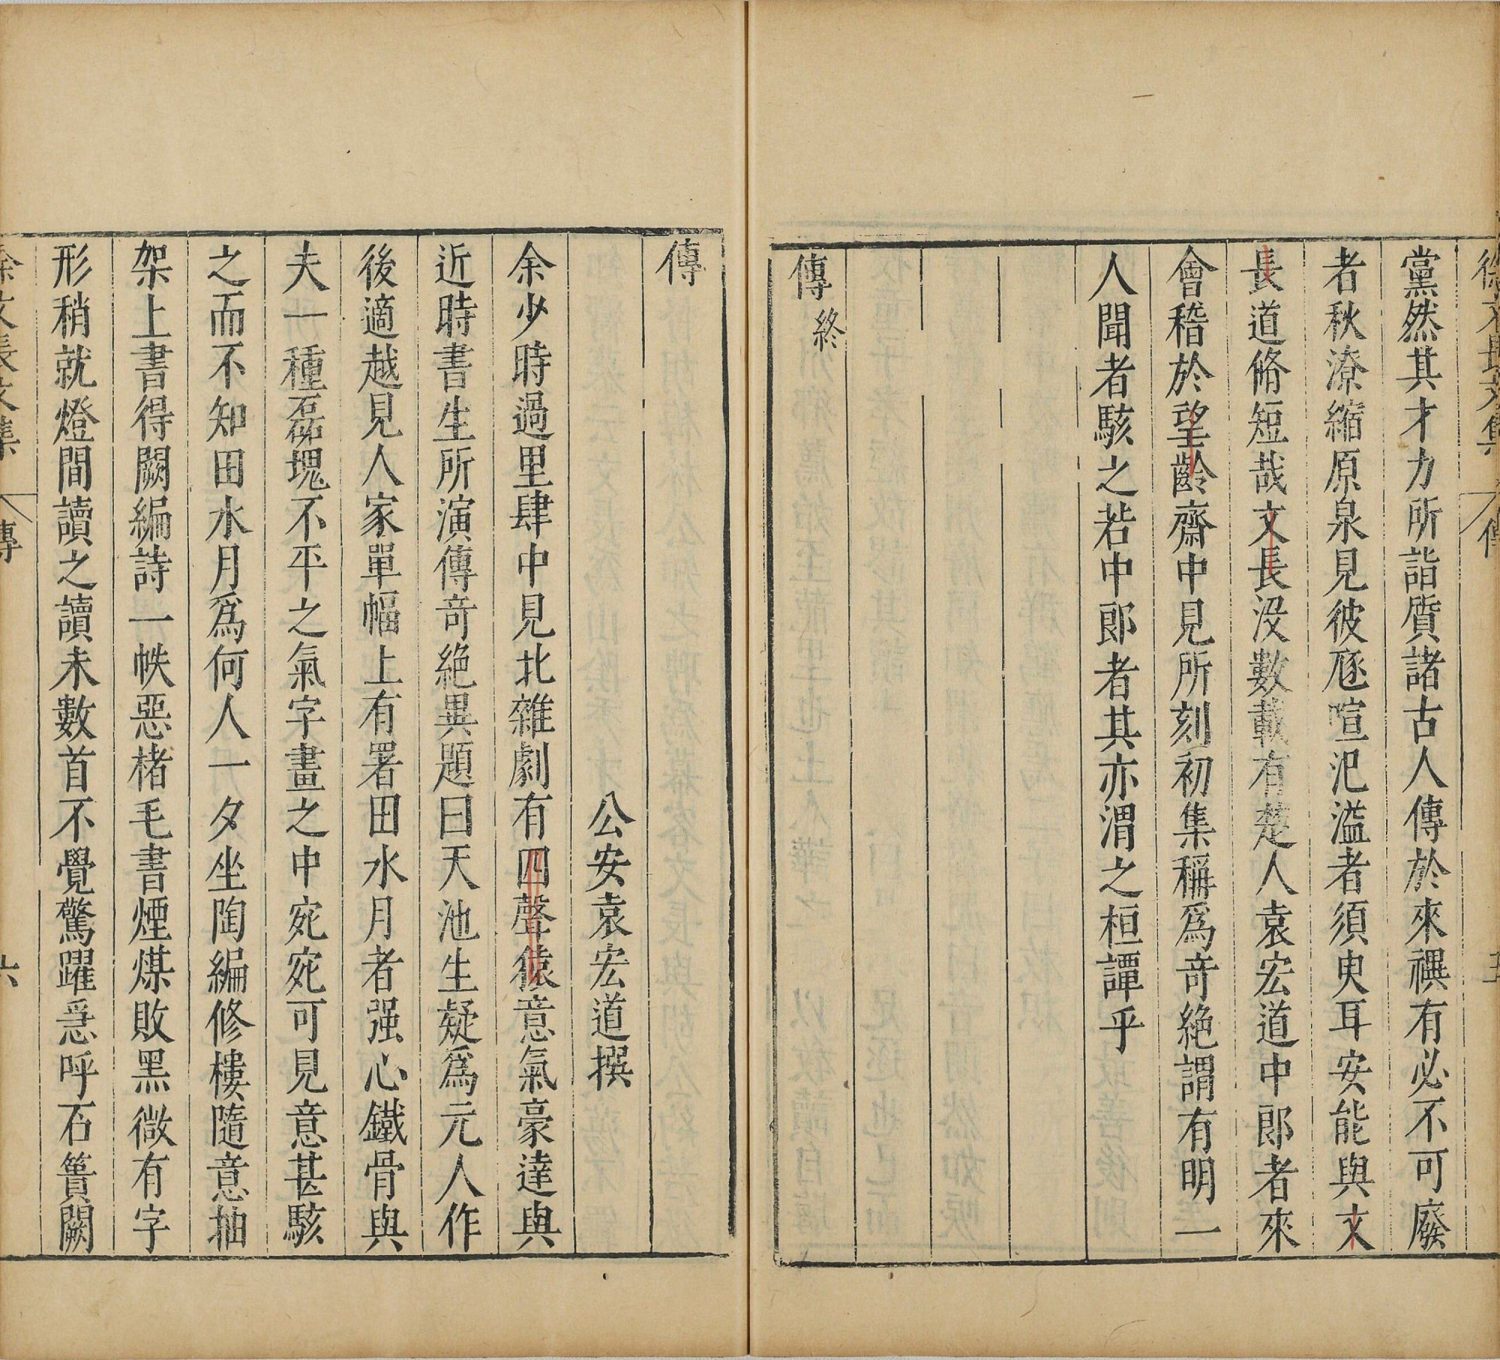 徐文長文集 傳
黨然其才力所詣質諸古人傳於來禩有必不可廢
者秋潦縮原泉見彼豗喧汜溢者須臾耳安能與文
長道脩短哉文長沒數載有楚人袁宏道中郎者來
會稽於望齡齋中見所刻初集稱爲奇絶謂有明一
人聞者駭之若中郎者其亦渭之桓譚乎
傳終
傳
公安袁宏道撰
余少時過里肆中見北雜劇有四聲猿意氣豪達與
近時書生所演傳奇絶異題曰天池生疑爲元人作
後適越見人家單幅上有署田水月者强心鐵骨與
夫一種磊塊不平之氣字畫之中宛宛可見意甚駭
之而不知田水月爲何人一夕坐陶編修樓隨意抽
架上書得闕編詩一帙惡楮毛書煙煤敗黑微有字
形稍就燈間讀之讀未數首不覺驚躍急呼石簣闕
徐文長文集 傳 六